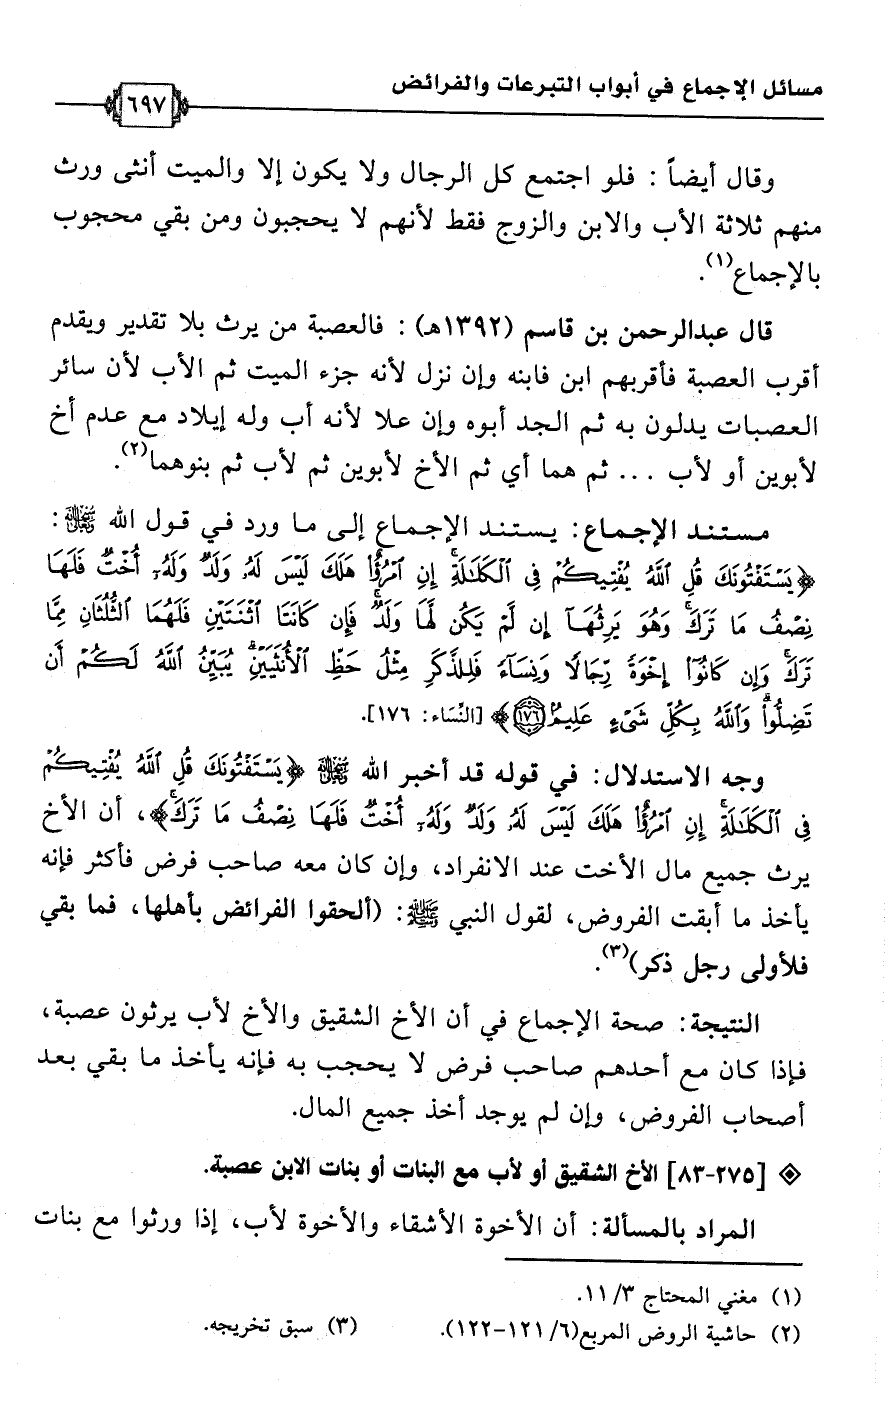 مسائل الإجماع في أبواب التبرعات والفرائض
٦٩٧
وقال أيضاً : فلو اجتمع كل الرجال ولا يكون إلا والميت أنثى ورث
منهم ثلاثة الأب والابن والزوج فقط لأنهم لا يحجبون ومن بقي محجوب
بالإجماع(١).
قال عبدالرحمن بن قاسم (١٣٩٢هـ) : فالعصبة من يرث بلا تقدير ويقدم
أقرب العصبة فأقربهم ابن فابنه وإن نزل لأنه جزء الميت ثم الأب لأن سائر
العصبات يدلون به ثم الجد أبوه وإن علا لأنه أب وله إيلاد مع عدم أخ
لأبوين أو لأب ... ثم هما أي ثم الأخ لأبوين ثم لأب ثم بنوهما(٢).
مستند الإجماع: يستند الإجماع إلى ما ورد في قول الله ﷻ :
﴿يَسْتَفْتُونَكَ قُلِ ٱللَّهُ يُفْتِيكُمْ فِى ٱلْكَلَٰلَةِۚ إِنِ ٱمْرُؤٌا۟ هَلَكَ لَيْسَ لَهُۥ وَلَدٌ وَلَهُۥٓ أُخْتٌ فَلَهَا
نِصْفُ مَا تَرَكَۚ وَهُوَ يَرِثُهَآ إِن لَّمْ يَكُن لَّهَا وَلَدٌۚ فَإِن كَانَتَا ٱثْنَتَيْنِ فَلَهُمَا ٱلثُّلُثَانِ مِمَّا
تَرَكَۚ وَإِن كَانُوٓا۟ إِخْوَةً رِّجَالًا وَنِسَآءً فَلِلذَّكَرِ مِثْلُ حَظِّ ٱلْأُنثَيَيْنِۗ يُبَيِّنُ ٱللَّهُ لَكُمْ أَن
تَضِلُّوا۟ۗ وَٱللَّهُ بِكُلِّ شَىْءٍ عَلِيمٌۢ ١٧٦﴾ [النِّسَاء: ١٧٦].
وجه الاستدلال: في قوله قد أخبر الله ﷻ ﴿يَسْتَفْتُونَكَ قُلِ ٱللَّهُ يُفْتِيكُمْ
فِى ٱلْكَلَٰلَةِۚ إِنِ ٱمْرُؤٌا۟ هَلَكَ لَيْسَ لَهُۥ وَلَدٌ وَلَهُۥٓ أُخْتٌ فَلَهَا نِصْفُ مَا تَرَكَۚ﴾، أن الأخ
يرث جميع مال الأخت عند الانفراد، وإن كان معه صاحب فرض فأكثر فإنه
يأخذ ما أبقت الفروض، لقول النبي ﷺ: (ألحقوا الفرائض بأهلها، فما بقي
فلأولى رجل ذكر)(٣).
النتيجة: صحة الإجماع في أن الأخ الشقيق والأخ لأب يرثون عصبة،
فإذا كان مع أحدهم صاحب فرض لا يحجب به فإنه يأخذ ما بقي بعد
أصحاب الفروض، وإن لم يوجد أخذ جميع المال.
[٢٧٥-٨٣] الأخ الشقيق أو لأب مع البنات أو بنات الابن عصبة.
المراد بالمسألة: أن الأخوة الأشقاء والأخوة لأب، إذا ورثوا مع بنات
(١) مغني المحتاج ١١/٣.
(٢) حاشية الروض المربع(٦/ ١٢١-١٢٢). (٣) سبق تخريجه.